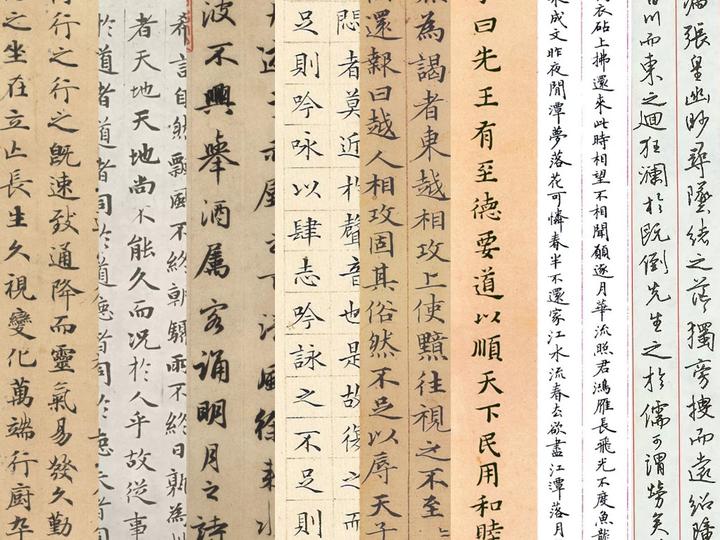 張皇幽眇尋墜緒之茫獨旁搜而遠紹障
百川而東之迴狂瀾於既倒先生之於儒可謂勞矣
衣砧上拂還來此時相望不相聞願逐月華流照君鴻雁長飛光不度魚龍
成文昨夜閒潭夢落花可憐春半不還家江水流春去欲盡江潭落月
曰先王有至德要道以順天下民用和睦
為謁者東越相攻上使黯往視之不至
還報曰越人相攻固其俗然不足以辱天子
悶者莫近於聲音也是故復之而
足則吟咏以肆志吟詠之不足則
之下清風徐來水
波不興舉酒屬客誦明月之詩
希言自然飄風不終朝驟雨不終日孰為
者天地天地尚不能久而況於人乎故從事
於道者道者同於道德者同於德失者同
行行之行之既速致通降而靈氣易發久勤
之坐在立亡長生久視變化萬端行廚卒